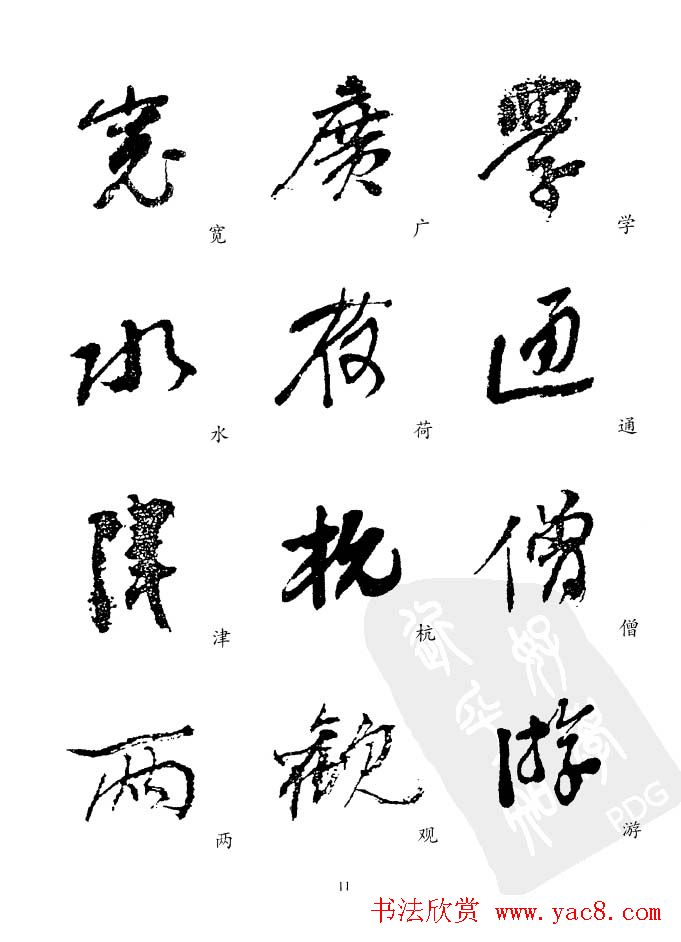 寬 廣 學
宽 广 学
水 荷 通
水 荷 通
津 杭 僧
津 杭 僧
两 観 游
两 观 游
PDG
11
书法欣赏 www.yac8.com